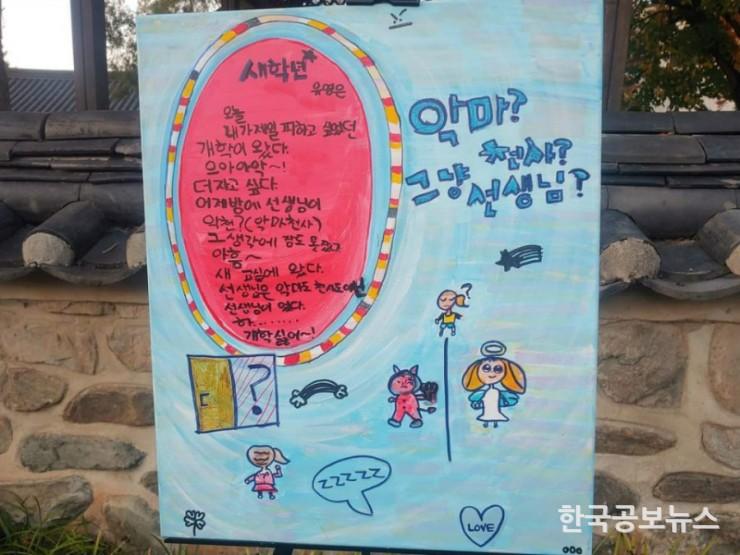 새학년
유영은
오늘
내가 제일 피하고 싶었던
개학이 왔다.
으아아악~!
더 자고 싶다.
어제밤에 선생님이
악천?(악마천사)
그 생각에 잠도 못잤고
아흠~
새 교실에 왔다.
선생님은 악마도 천사도 아닌
선생님이 었다.
하........
개학 싫어~!
악마?
천사?
그냥 선생님?
?
?
ZZZZZ
LOVE
한국공보뉴스